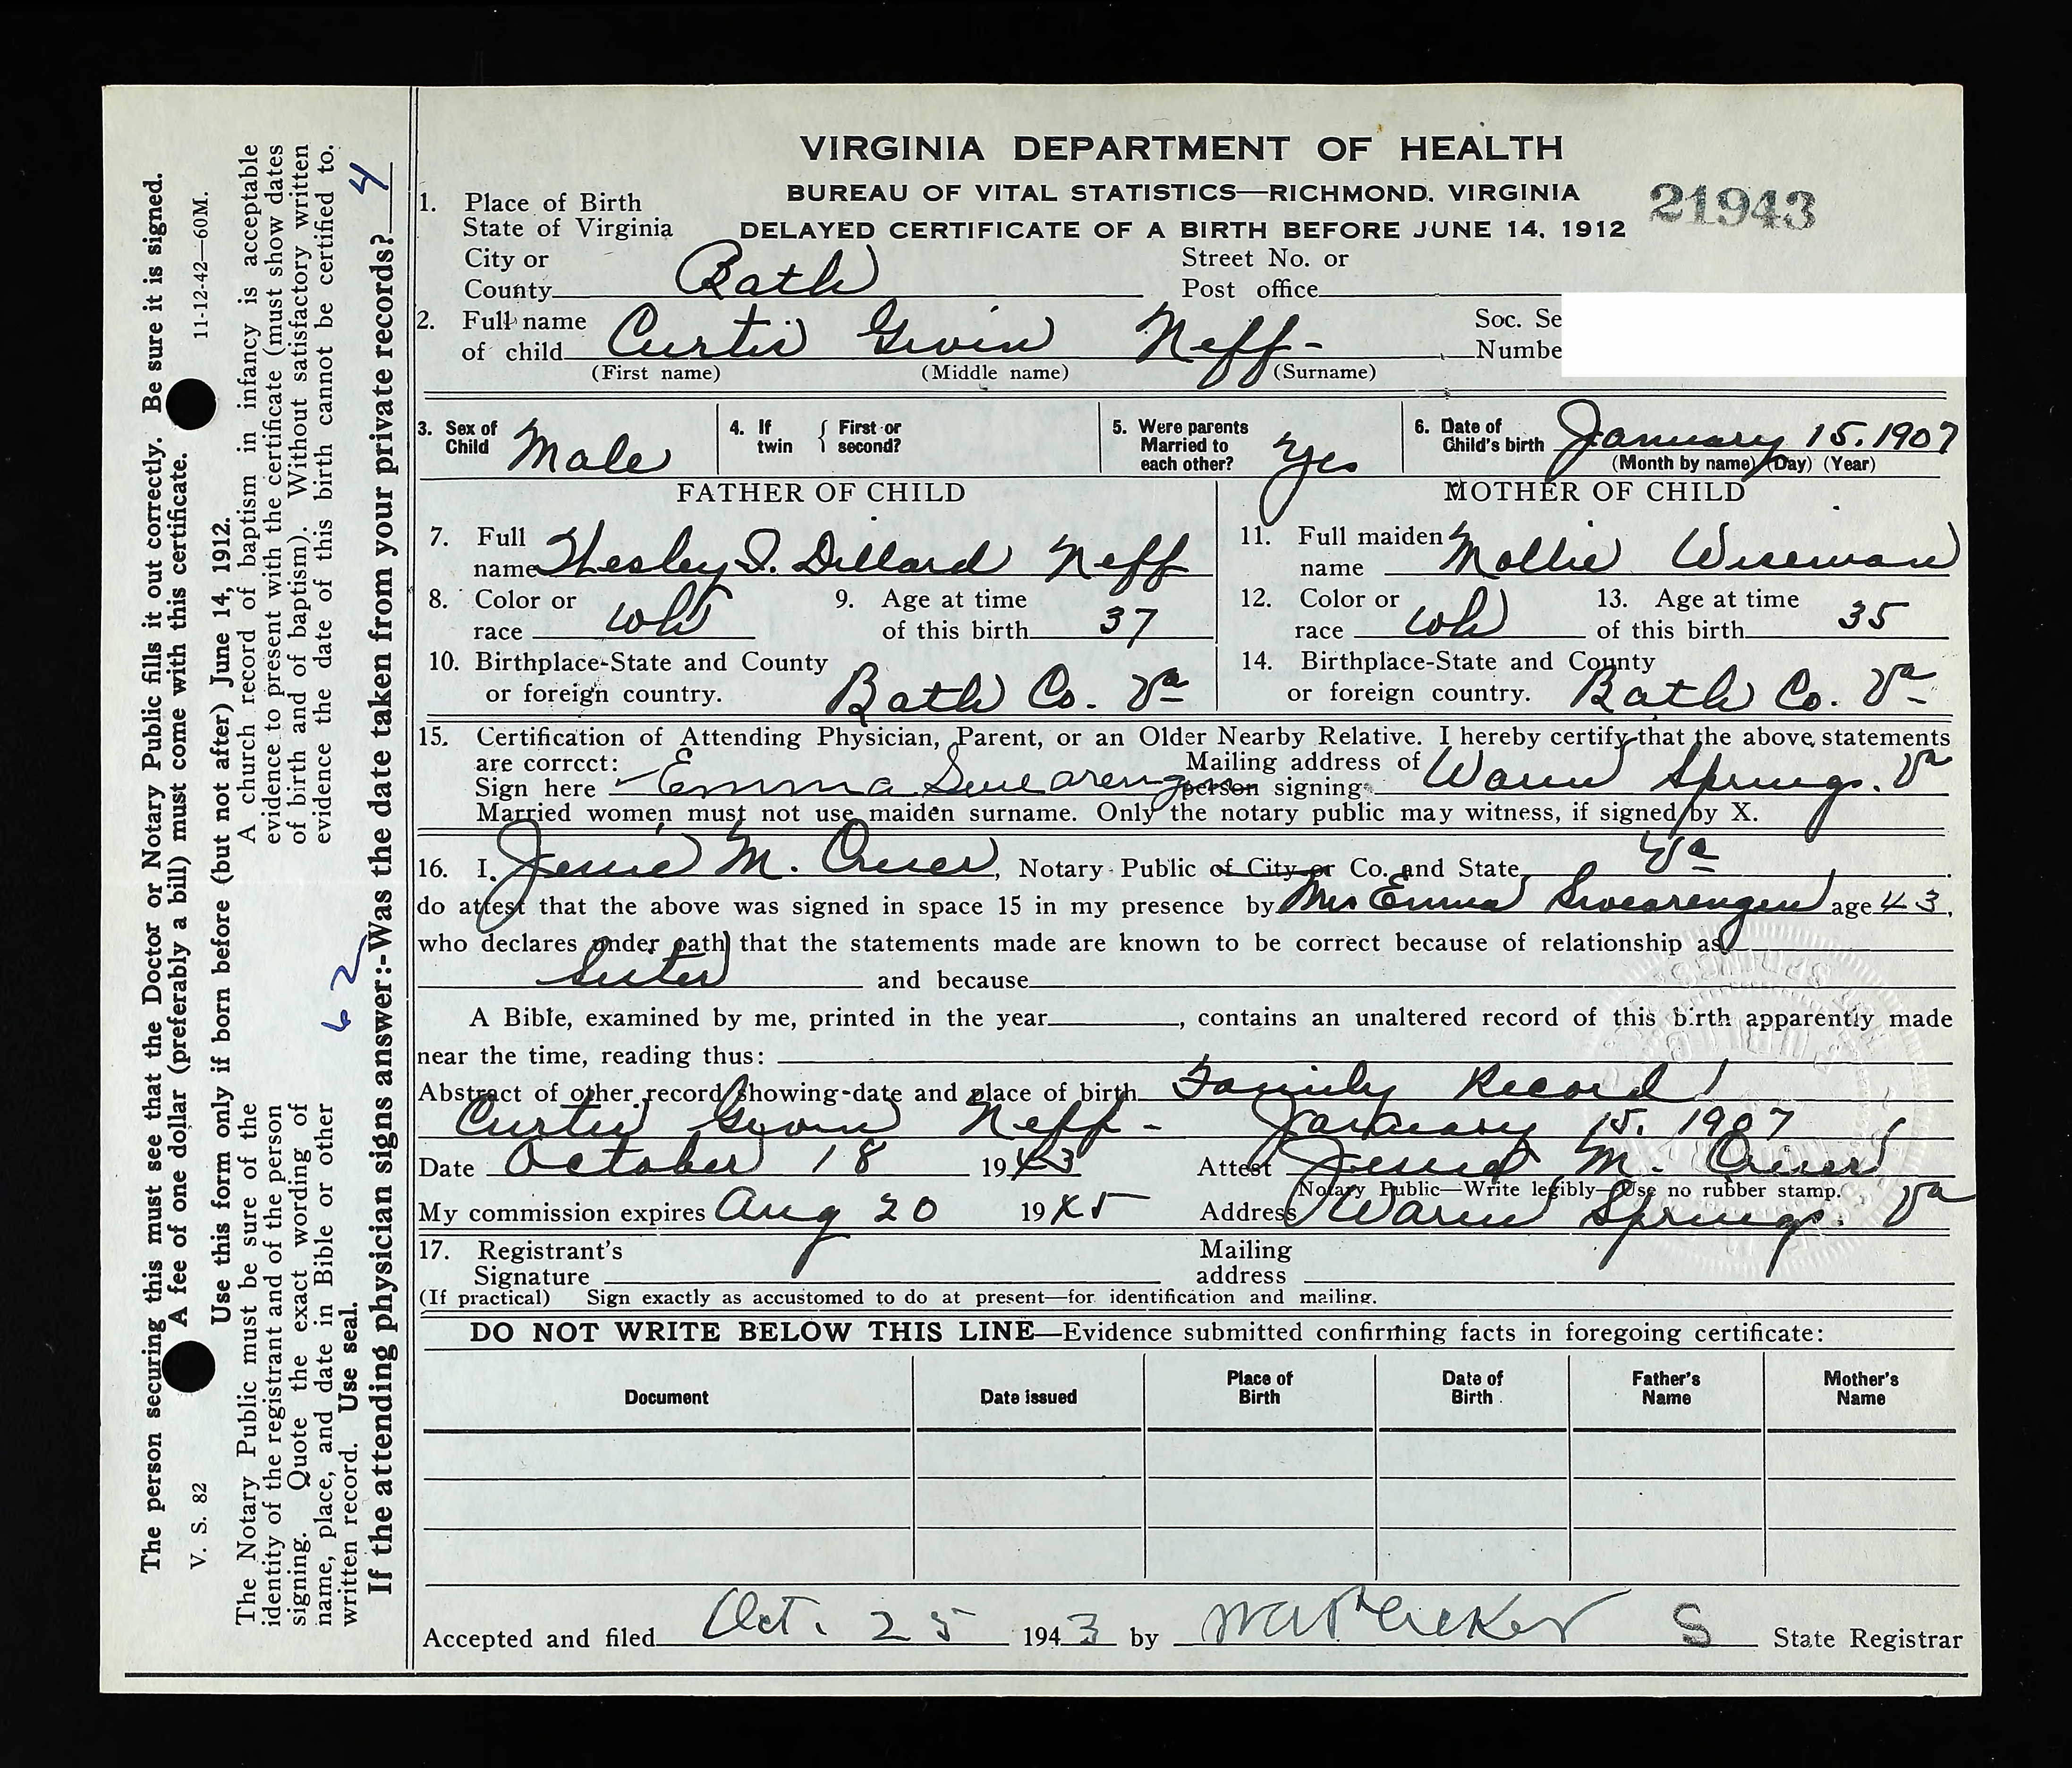 VIRGINIA DEPARTMENT OF HEALTH
BUREAU OF VITAL STATISTICS—RICHMOND, VIRGINIA
21943
DELAYED CERTIFICATE OF A BIRTH BEFORE JUNE 14, 1912
1. Place of Birth
State of Virginia
City or County Bath Street No. or Post office
2. Full name of child Curtis Gwin Neff Soc. Se
Numbe
(First name) (Middle name) (Surname)
3. Sex of Child Male 4. If twin { First or second? 5. Were parents Married to each other? Yes 6. Date of Child's birth January 15, 1907
(Month by name) (Day) (Year)
FATHER OF CHILD MOTHER OF CHILD
7. Full name Wesley I. Dillard Neff 11. Full maiden name Mollie Wiseman
8. Color or race wh 9. Age at time of this birth 37 12. Color or race wh 13. Age at time of this birth 35
10. Birthplace-State and County or foreign country. Bath Co. Va 14. Birthplace-State and County or foreign country. Bath Co. Va
15. Certification of Attending Physician, Parent, or an Older Nearby Relative. I hereby certify that the above statements
are correct:
Sign here Emma Swearengen Mailing address of person signing Warm Springs. Va
Married women must not use maiden surname. Only the notary public may witness, if signed by X.
16. I, M. , Notary Public of City or Co. and State, Va
do attest that the above was signed in space 15 in my presence by Mrs Emma Swearengen age 43,
who declares under oath that the statements made are known to be correct because of relationship as
Sister and because
A Bible, examined by me, printed in the year , contains an unaltered record of this birth apparently made
near the time, reading thus:
Abstract of other record showing date and place of birth Family Record
Curtis Gwin Neff - January 15, 1907
Date October 18 1943 Attest M.
Notary Public—Write legibly—Use no rubber stamp.
My commission expires Aug 20 1945 Address Warm Springs. Va
17. Registrant's Signature Mailing address
(If practical) Sign exactly as accustomed to do at present—for identification and mailing.
DO NOT WRITE BELOW THIS LINE—Evidence submitted confirming facts in foregoing certificate:
Document Date issued Place of Birth Date of Birth Father's Name Mother's Name
Accepted and filed Oct. 25 1943 by S State Registrar
The person securing this must see that the Doctor or Notary Public fills it out correctly. Be sure it is signed.
A fee of one dollar (preferably a bill) must come with this certificate.
V. S. 82 11-12-42—60M.
Use this form only if born before (but not after) June 14, 1912.
The Notary Public must be sure of the
identity of the registrant and of the person
signing. Quote the exact wording of
name, place, and date in Bible or other
written record. Use seal.
A church record of baptism in infancy is acceptable
evidence to present with the certificate (must show dates
of birth and of baptism). Without satisfactory written
evidence the date of this birth cannot be certified to.
62
If the attending physician signs answer:-Was the date taken from your private records? 4